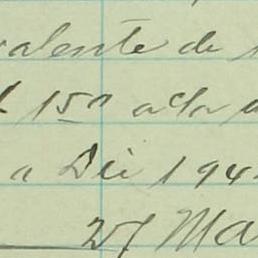 valente de
150 acta
a Dei 194
27 Ma